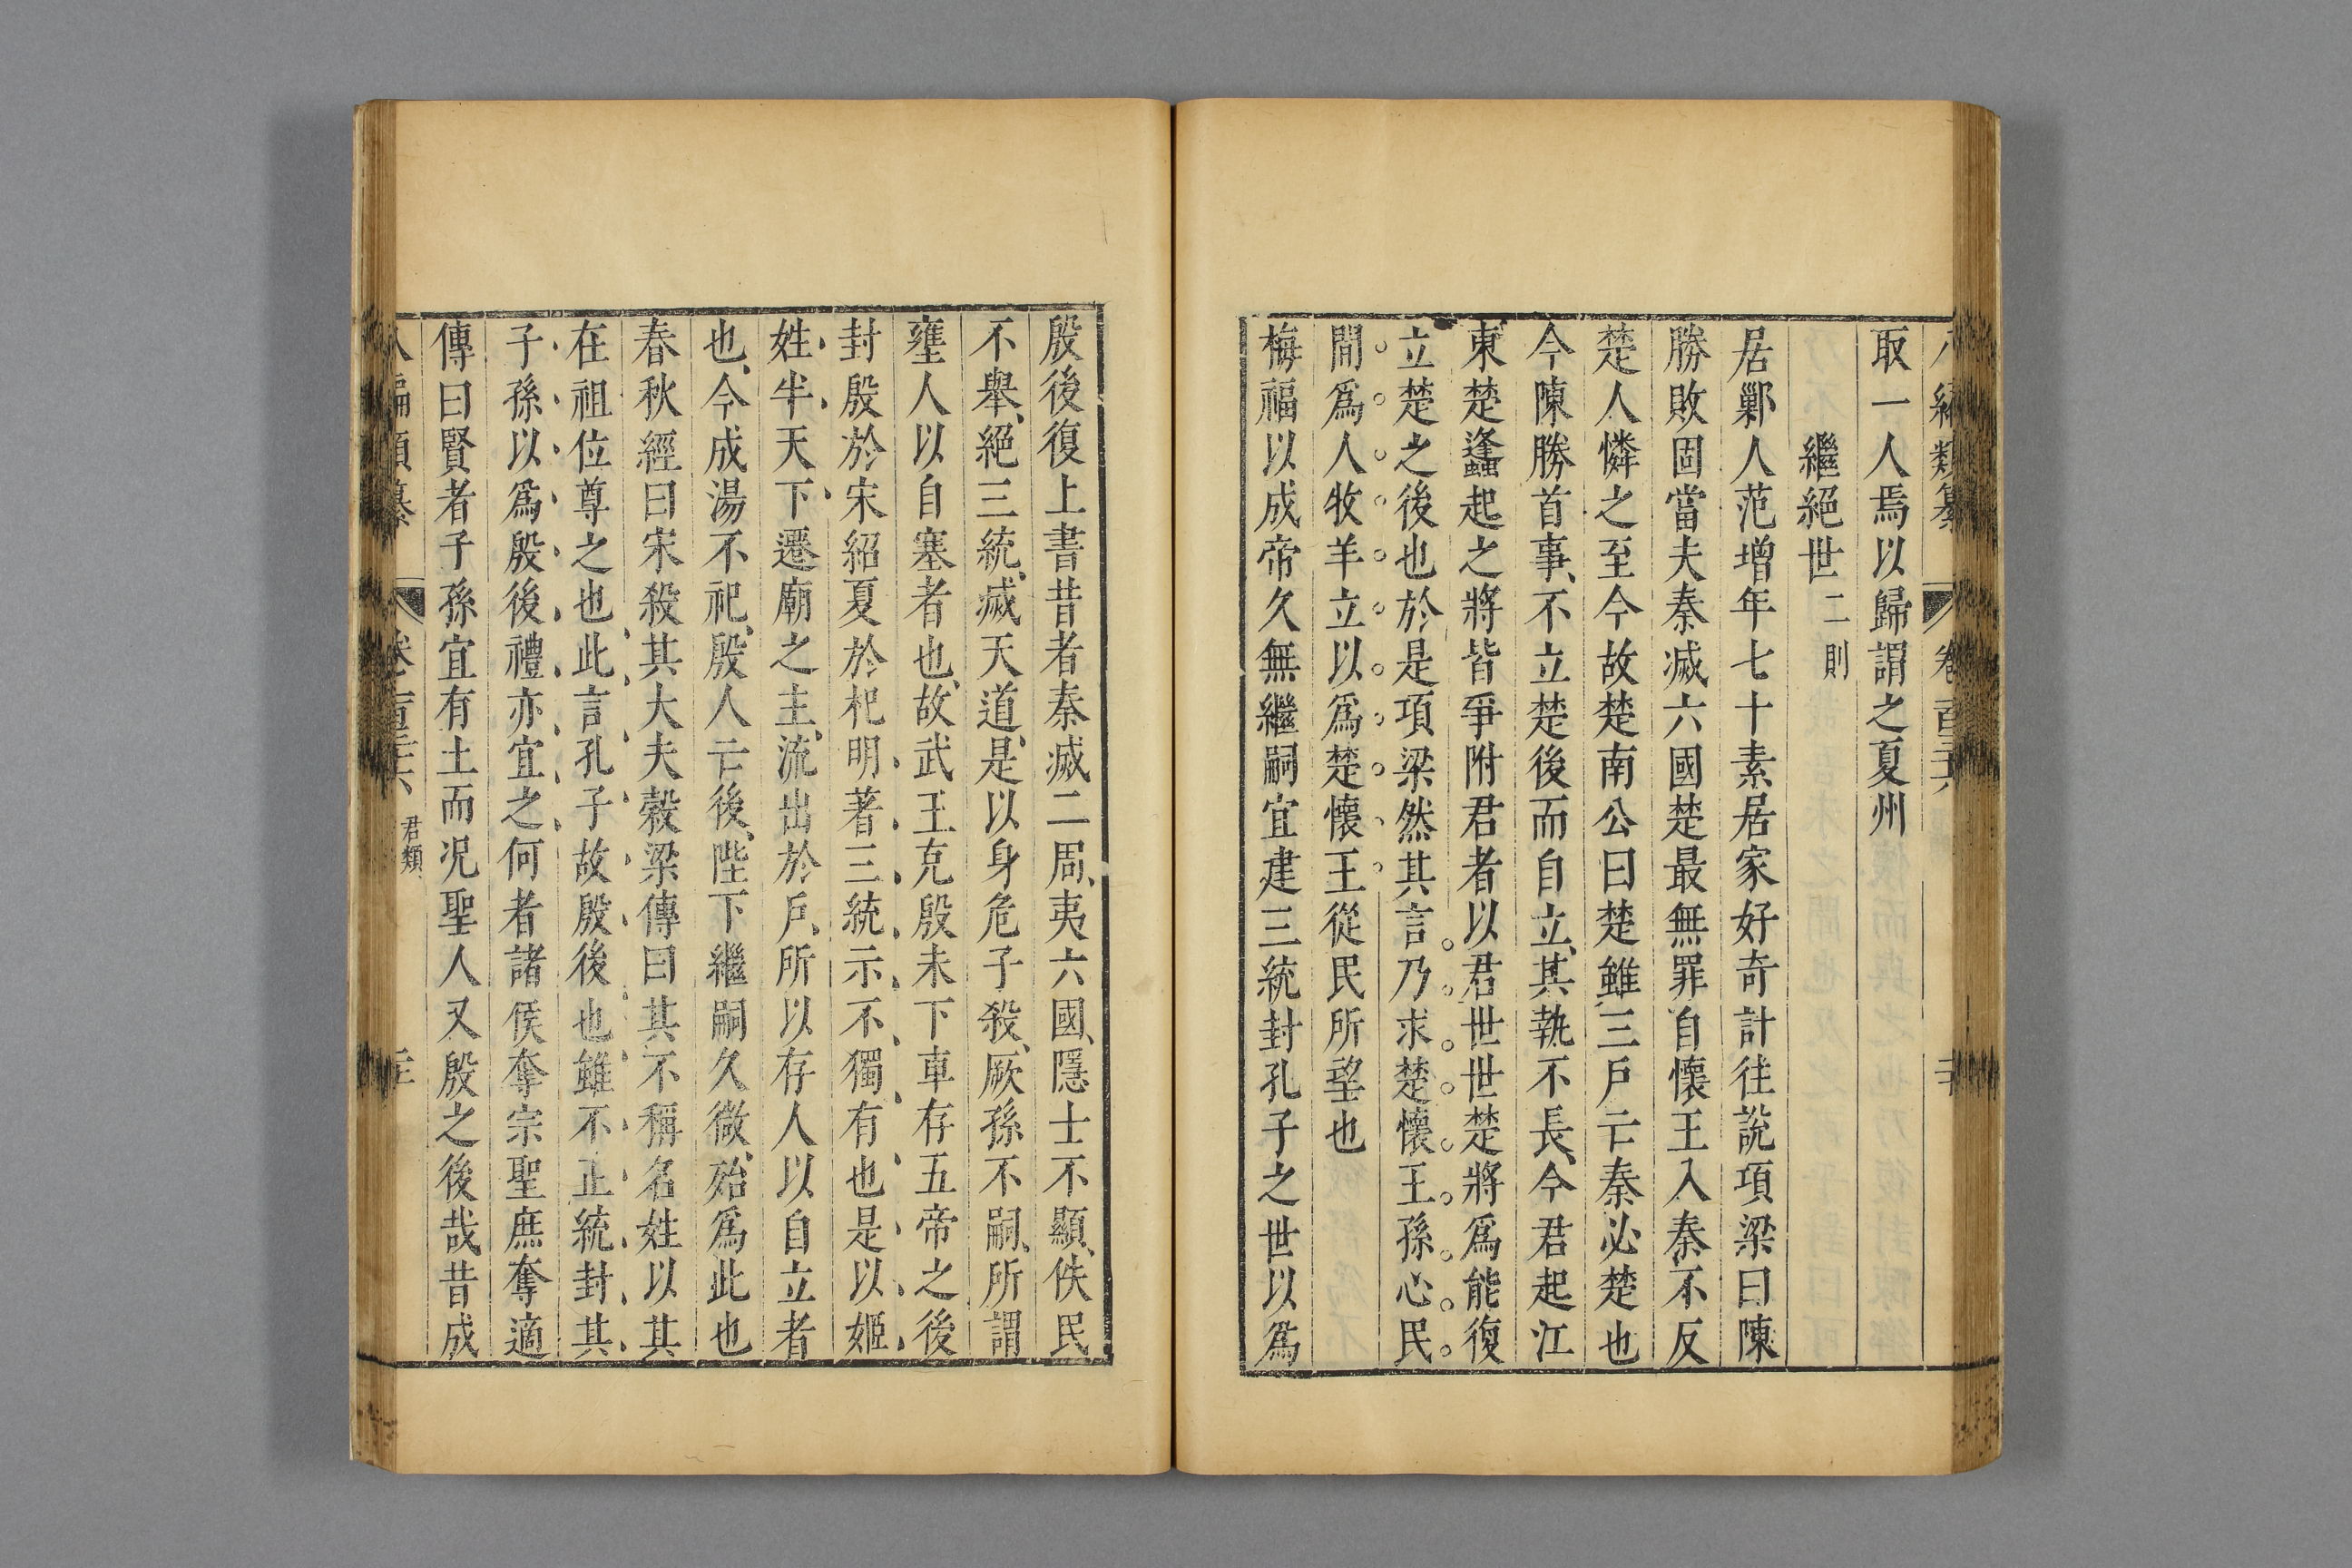 八編類纂 卷百 二十
取一人焉以歸謂之夏州
繼絕世二則
居鄛人范增年七十素居家好奇計往說項梁曰陳
勝敗固當夫秦滅六國楚最無罪自懷王入秦不反
楚人憐之至今故楚南公曰楚雖三戶亡秦必楚也
今陳勝首事、不立楚後而自立、其執不長、今君起江
東楚蠭起之將皆爭附君者以君世世楚將爲能復
立楚之後也於是項梁然其言乃求楚懷王孫心民
間爲人牧羊立以爲楚懷王從民所望也
梅福以成帝久無繼嗣宜建三統封孔子之世以爲
殷後復上書昔者秦滅二周、夷六國、隱士不顯、佚民
不舉、絕三統、滅天道、是以身危子殺、厥孫不嗣、所謂
壅人以自塞者也、故武王克殷未下車存五帝之後
封殷於宋紹夏於杞明著三統示不獨有也是以姬
姓半天下遷廟之主、流出於戶、所以存人以自立者
也、今成湯不祀、殷人亡後、陛下繼嗣久微、殆爲此也
春秋經曰宋殺其大夫穀梁傳曰其不稱名姓以其
在祖位尊之也此言孔子故殷後也雖不正統封其
子孫以爲殷後禮亦宜之何者諸侯奪宗聖庶奪適
傳曰賢者子孫宜有土而况聖人又殷之後哉昔成
八編類纂 卷百 君類